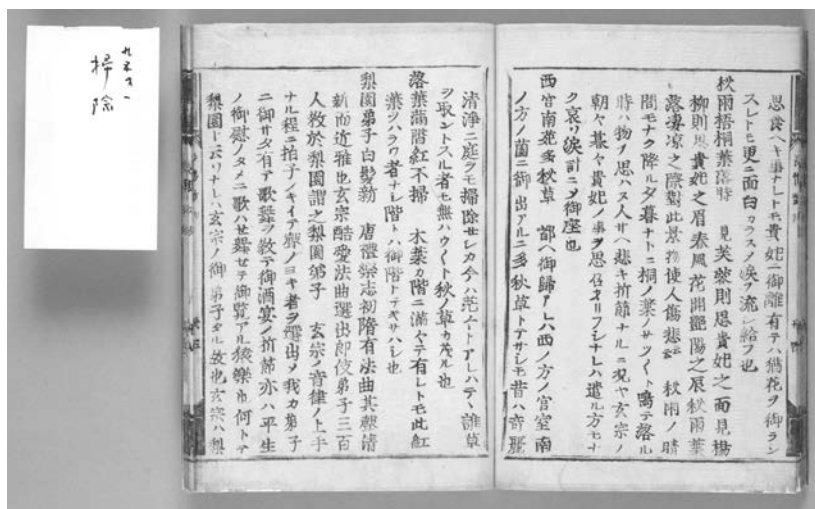 思食ヘキ事ナレトモ貴妃ニ御離有テハ猶花ヲ御ラン
スレトモ更ニ面白カラスノ涙ヲ流シ給フ也
秋雨梧桐葉落時 見芙蓉則思貴妃之面見楊
柳則思貴妃之眉春風花開艶陽之辰秋雨葉
落凄凉之際對此景物使人傷悲云 秋雨ノ晴
間モナク降ル夕暮ナトニ桐ノ葉ノサツ〱ト鳴テ落ル
時ハ物ヲ思ハス人サヘ悲キ折節ナルニ況ヤ玄宗ノ
朝々暮々貴妃ノ事ヲ思召
ク哀り涙計ニメ御座也
西宮南苑多秋草 都ヘ御歸アレハ西ノ方ノ宮室南
ノ方ノ薗ニ御出アルニ多秋草トテサシモ昔ハ奇麗
清淨ニ庭ヲモ掃除セレカ今ハ荒
ヲ取ントスル者モ無ハウ〱ト秋ノ草カ茂ル也
落葉滿階紅不掃 木葉カ階ニ滿々テ有レトモ此紅
葉ヲハラウ者ナレ階トハ御階トテキサハシ也
梨園弟子白髮新 唐禮樂志初隋有法曲其聲清
新而近雅也玄宗酷愛法曲選出郎伎弟子三百
人教於梨園謂之梨園弟子 玄宗ハ音律ノ上手
ナル程ニ拍子ノキイテ聲ノヨキ者ヲ選出メ我カ弟子
ニ御サタ有テ歌舞ヲ教テ御酒宴ノ折節亦ハ平生
ノ御慰ノタメニ歌ハせ舞せテ御覧アル猿樂也何トテ
梨園ト云リナレハ玄宗ノ御弟子タル故也玄宗ハ梨
掃除